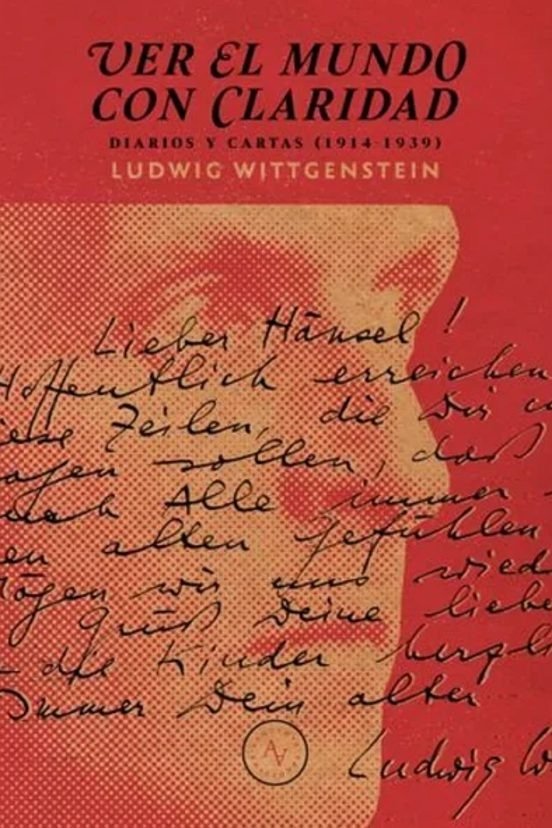 VER EL MUNDO
CON CLARIDAD
DIARIOS Y CARTAS (1914-1939)
LUDWIG WITTGENSTEIN
Lieber Hänsel!
Hoffentlich erreichen
iese Zeilen, die Dir
agen sollen, daß
Alle immer
en alten Gefühlen
ögen wir uns wied
Gruß Deine liebe
die Kinder herzli
Immer Dein alter
Ludwig W
AV